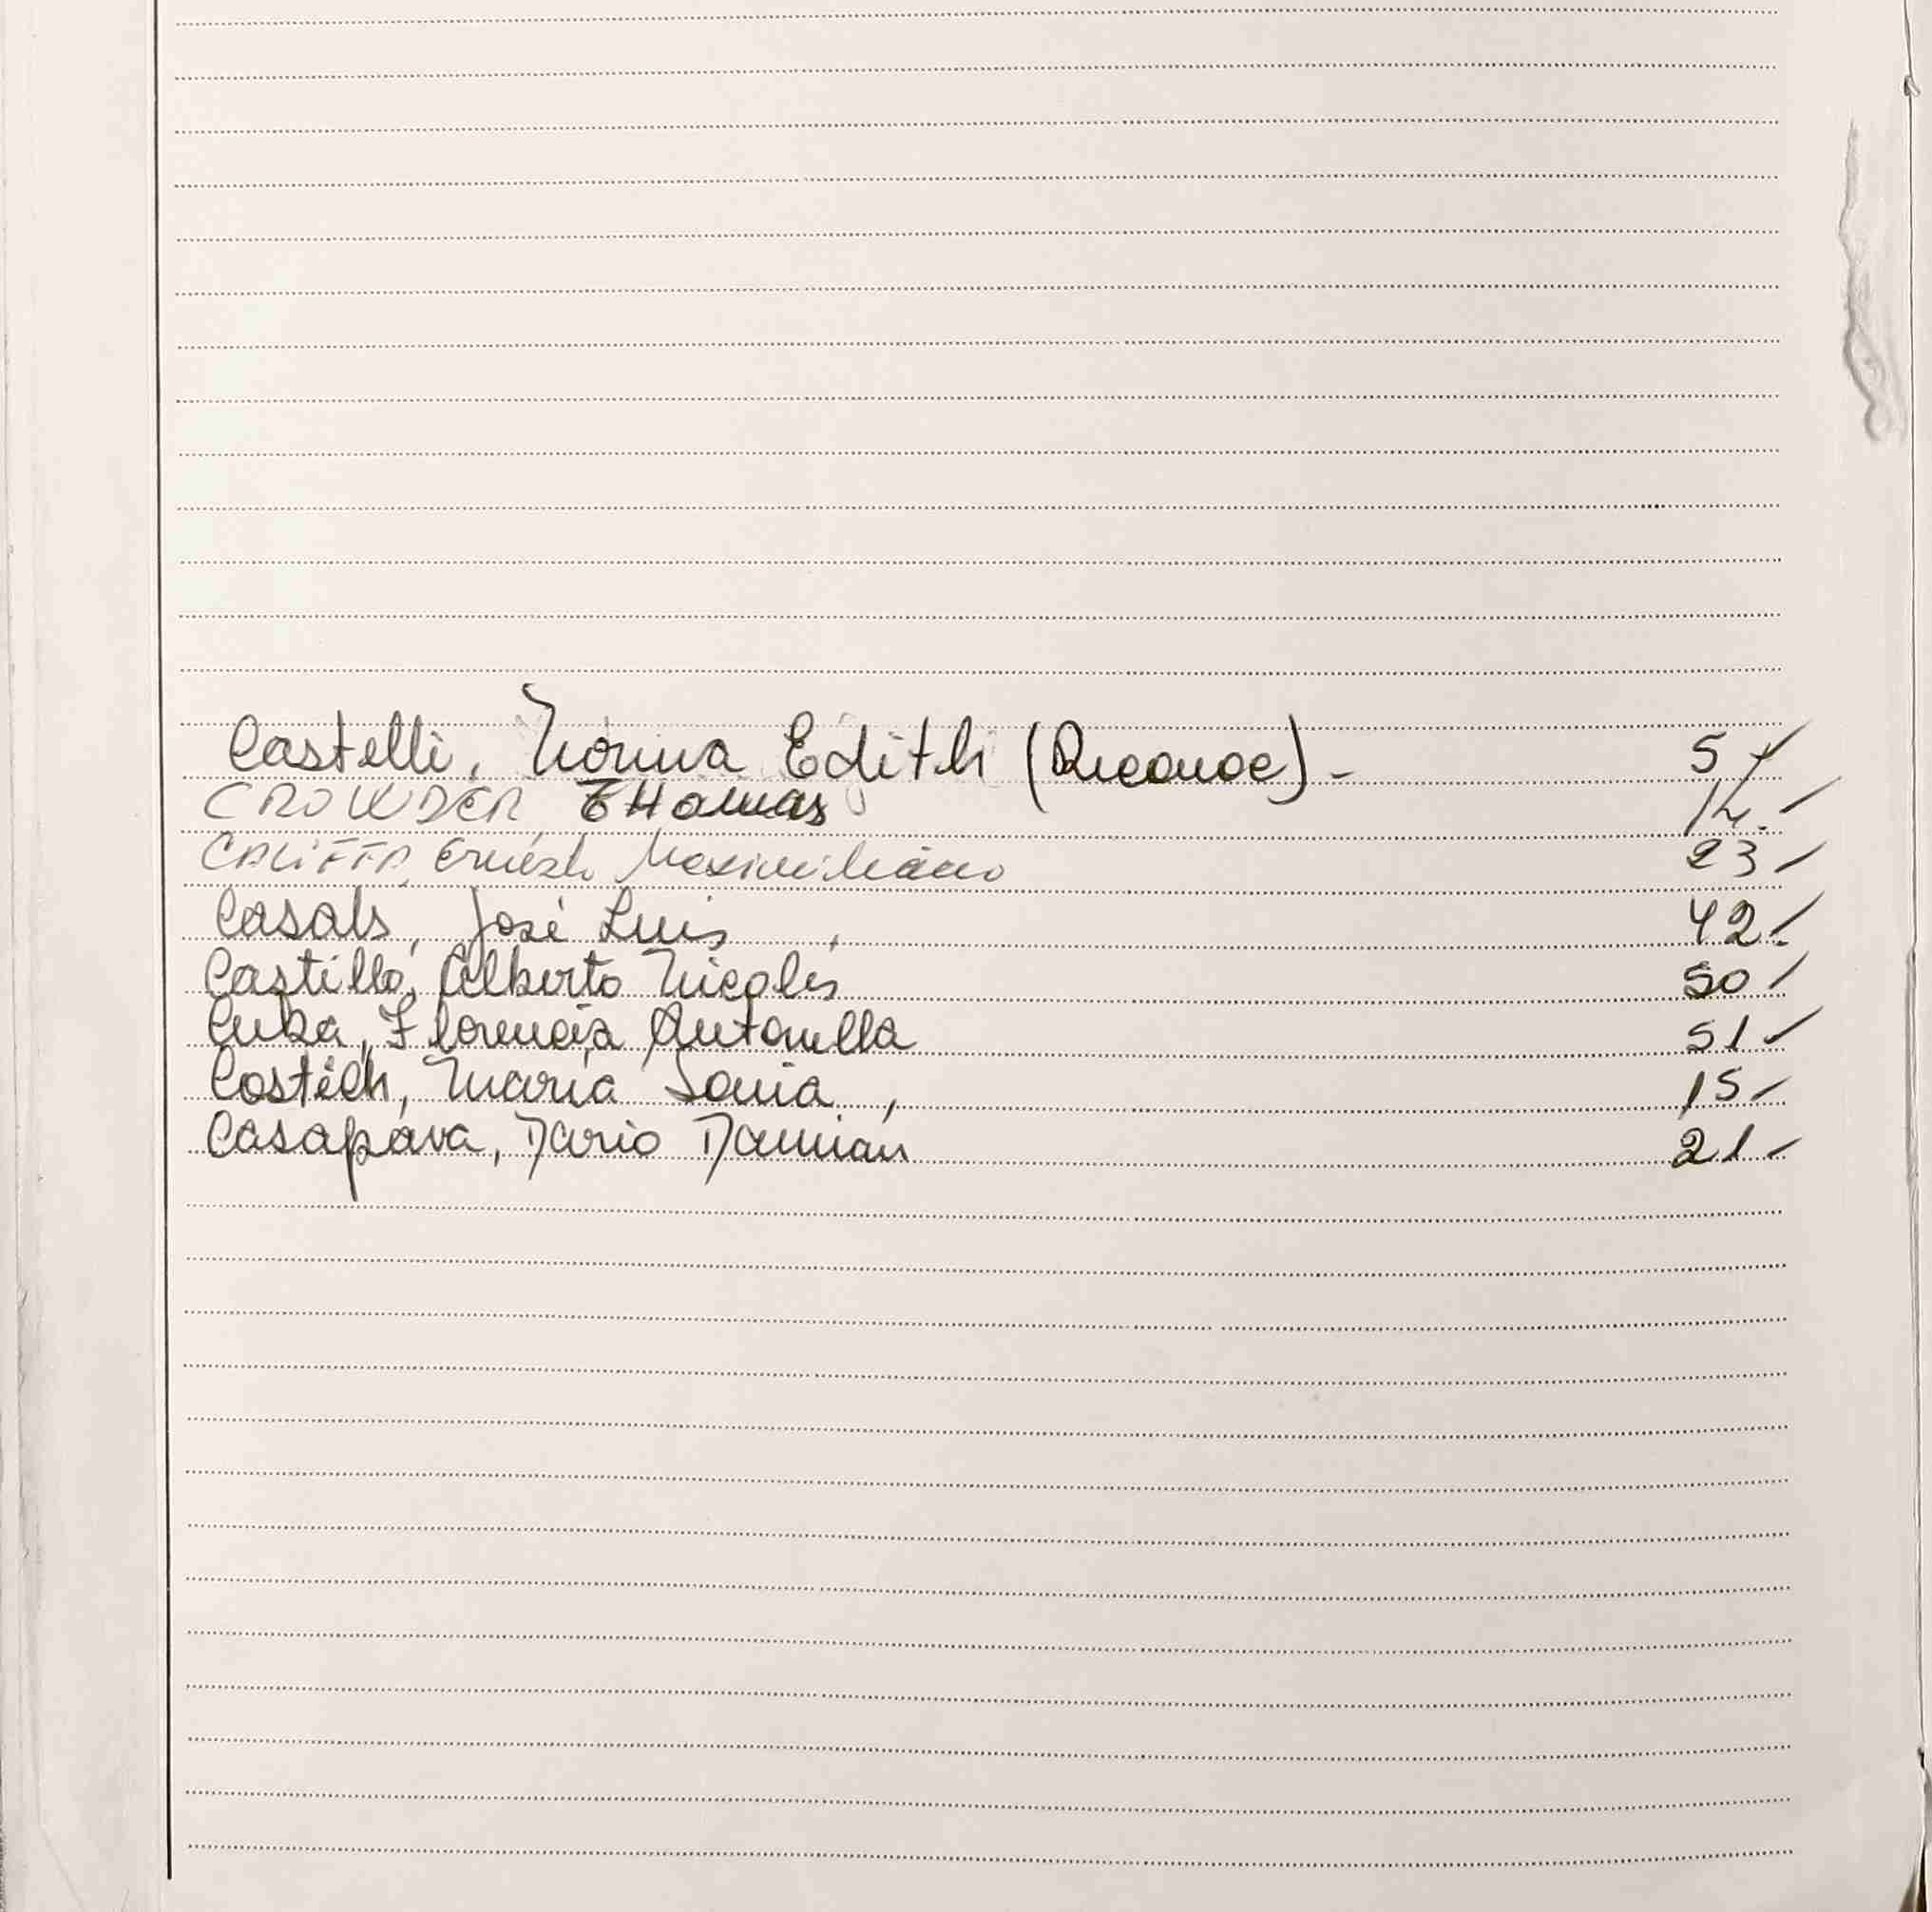 Castelli, Norma Edith (Reconoc) - 5 ✓
CROWDER, THomas 14. ✓
CALIFFA, Ernesto Maximiliano 23 ✓
Casals, José Luis 42. ✓
Castillo, Alberto Nicolás 50 ✓
Cuba, Florencia Antonella 51 ✓
Costich, María Sonia, 15 ✓
Casapava, Dario Damián 21 ✓